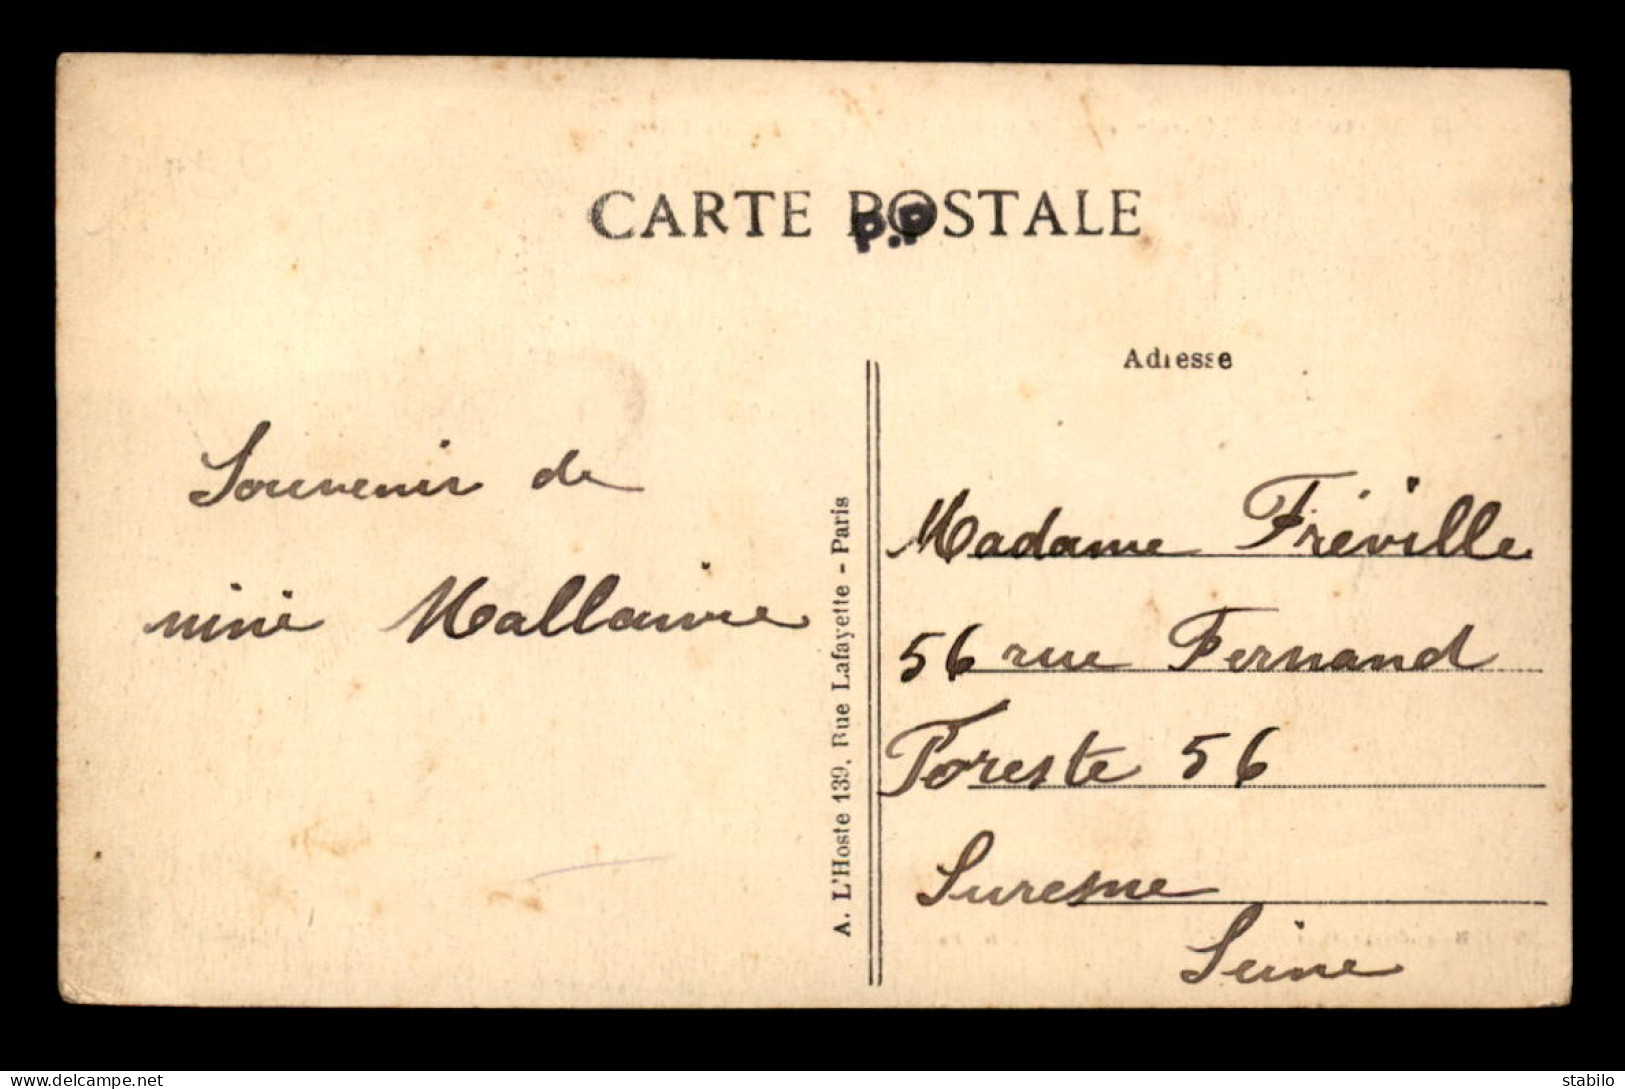 CARTE POSTALE
P.P
Adresse
Souvenir de
nini Mallaivre
A. L'Hoste 139, Rue Lafayette - Paris
Madame Fréville
56 rue Fernand
Foreste 56
Suresne
Seine
delcampe.net
stabilo